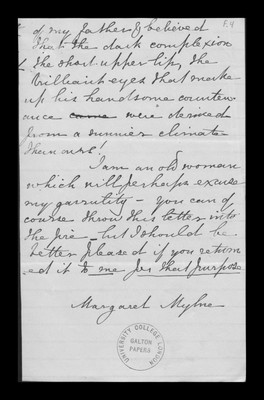 f.9
of my father & believed
that the dark complexion
the short upper lip, the
brilliant eyes that make
up his handsome counten-
ance came were derived
from a sunnier climate
than ours!
I am an old woman
which will perhaps excuse
my garrulity - You can of
course throw this letter into
the fire - but I should be
better pleased if you return
-ed it to me for that purpose
Margaret Mylne
UNIVERSITY COLLEGE LONDON
GALTON
PAPERS